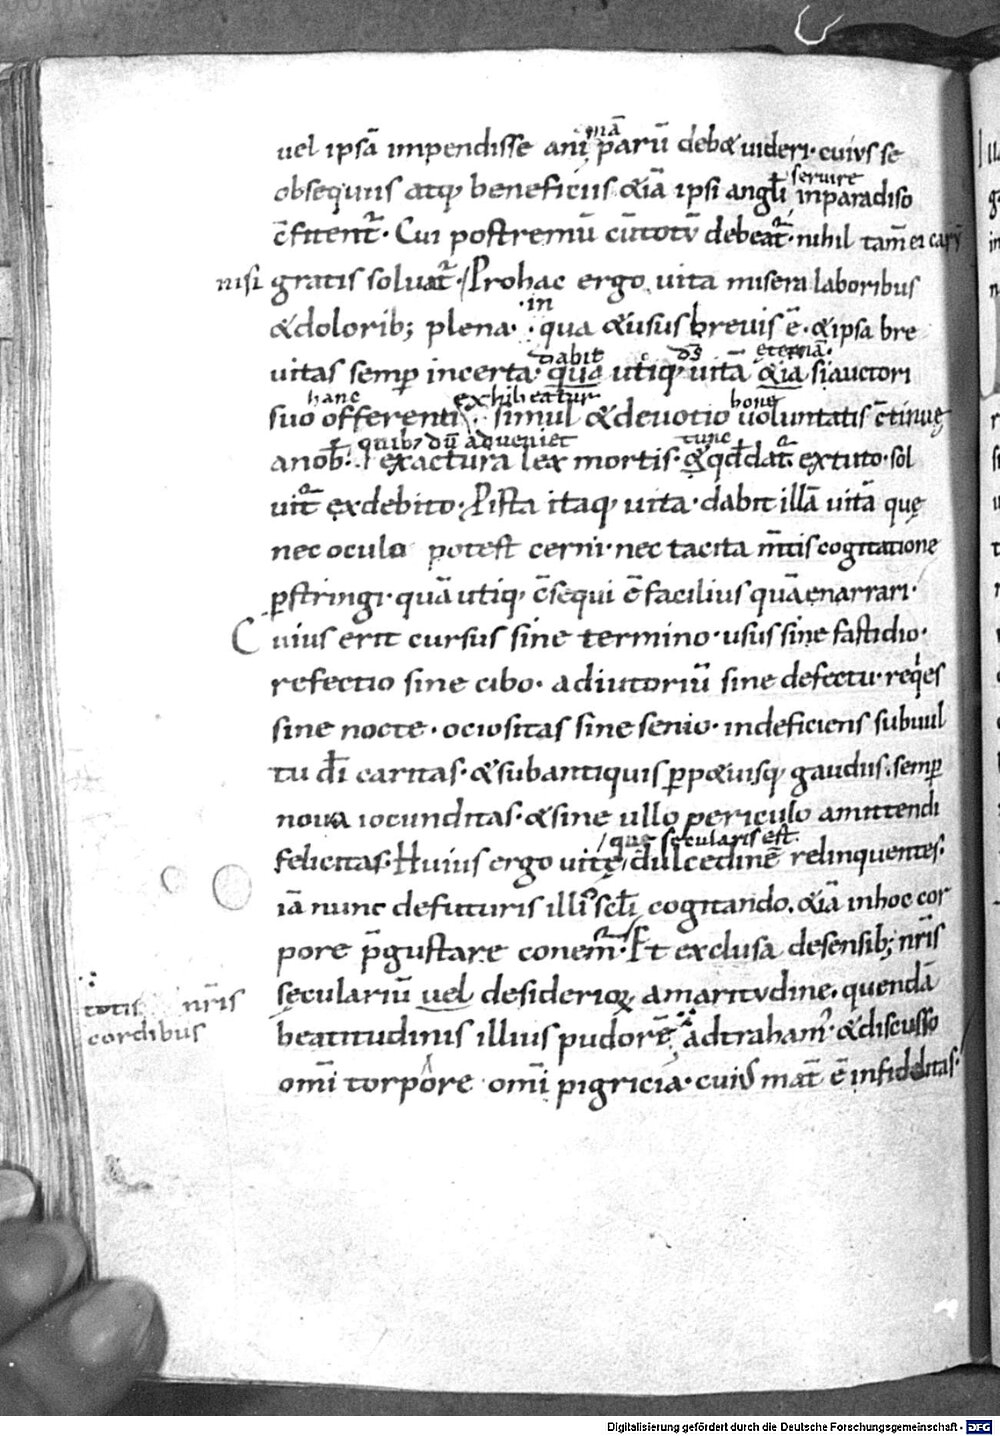 uel ipsā impendisse ani᷑mā parū debet uideri· cuius se
obsequiis atq; beneficiis &iā ipsi angłi seruire inparadiso
c̄fitent᷑· Cui postremū cū totū debeat᷑· nihil tam̄ ei carū
nisi gratis soluat᷑· Prohac ergo uita misera laboribus
&dolorib; plena· in qua &usus breuis ē· &ipsa bre
uitas semp̱ incerta· dabit qua utiq; ds̄ uitā eternā· &iā si auctori
suo hanc offerenti exhibeatur simul &deuotio bone uoluntatis c̄tinuę
anob̄· quib; dū adueniet exactura lex mortis· tunc
uit᷑ ex debito· Ista itaq; uita· dabit illā uitā quę
nec oculo potest cerni· nec tacita m̄tis cogitatione
p̱stringi· quā utiq; c̄sequi ē facilius quā enarrari·
Cuius erit cursus sine termino· usus sine fastidio·
refectio sine cibo· adiutoriū sine defectu· req̇es
sine nocte· ociositas sine senio· indeficiens sub uul
tu dī caritas· &sub antiquis p̱p&uisq; gaudiis· semp̱
noua iocunditas· &sine ullo periculo amittendi
felicitas· Huius ergo uitę, que secularis est dulcedinē relinquentes·
iā nunc de futuris illi᷒ scłi cogitando· &iā inhoc cor
pore p̄gustare conem᷑· Et exclusa de sensib; nr̄is
sęculariū uel desiderioꝝ amaritudine· quendā
totis nr̄is
cordibus
beatitudinis illius pudorē adtraham᷒· &discusso
omi̅ torpore omi̅ pigricia· cuius mat̄ ē infidelitas·
Digitalisierung gefördert durch die Deutsche Forschungsgemeinschaft - DFG